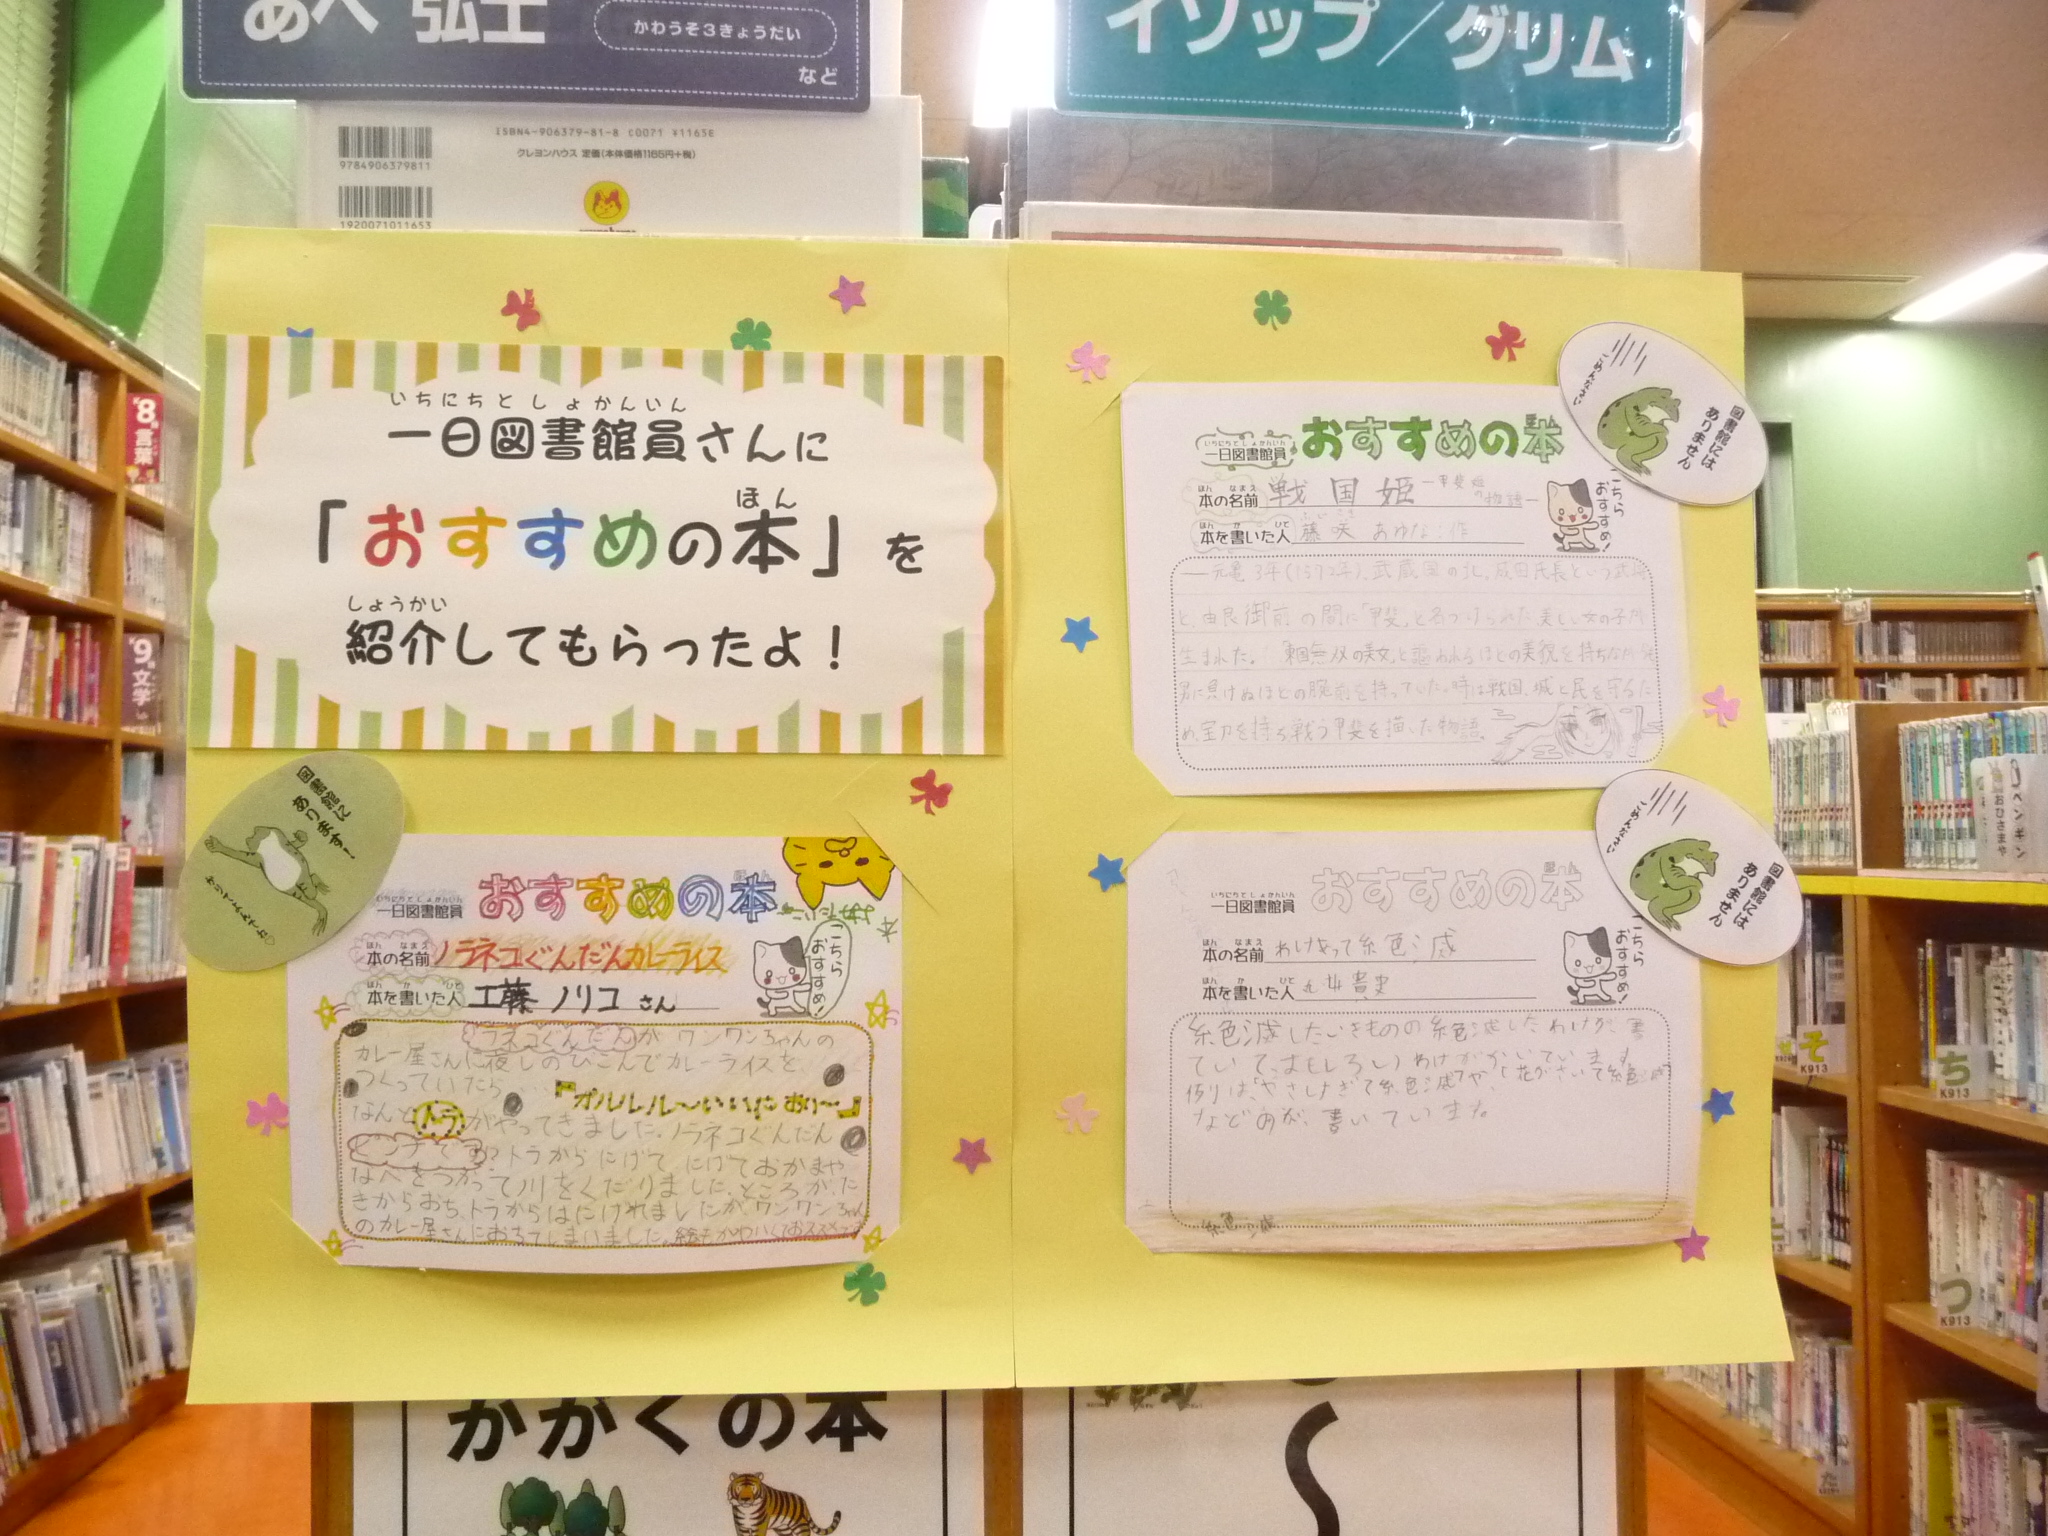 あべ 弘士
かわうそ3きょうだい
など
イソップ／グリム
ISBN4-906379-81-8 C0071 ¥1165E
クレヨンハウス 定価(本体価格1165円+税)
9784906379811
1920071011653
いちにちとしょかんいん
一日図書館員さんに
ほん
「おすすめの本」を
しょうかい
紹介してもらったよ！
図書館に
あります！
いちにちとしょかんいん
一日図書館員
おすすめの本
ほん なまえ
本の名前 ノラネコぐんだんカレーライス
ほん か ひと
本を書いた人 工藤 ノリコ さん
こちら
おすすめ！
ノラネコぐんだんが ワンワンちゃんの
カレー屋さんに夜しのびこんでカレーライスを、
つくっていたら…
『オルルル〜いいにおい〜』
なんとトラがやってきました。ノラネコぐんだん
ピンチです？トラからにげて、にげておかまや
なべをつかって川をくだりました、ところが、た
きからおち、トラからはにげれましたが、ワンワンちゃん
のカレー屋さんにおちてしまいました。絵もかわいくておススメ
いちにちとしょかんいん
一日図書館員
おすすめの本
ほん なまえ
本の名前 戦国姫 ー甲斐姫の物語ー
ほん か ひと
本を書いた人 藤咲 あゆな：作
こちら
おすすめ！
図書館には
ありません
ごめんなさい
―元亀3年(1572年)、武蔵国の北、成田氏長という武将
と、由良御前の間に「甲斐」と名づけられた美しい女の子が
生まれた。東国無双の美女と謳われるほどの美貌を持ちながら
男に負けぬほどの腕前を持っていた。時は戦国、城と民を守るた
め、宝刀を持ち戦う甲斐を描いた物語。
いちにちとしょかんいん
一日図書館員
おすすめの本
ほん なまえ
本の名前 わけあって絶滅
ほん か ひと
本を書いた人 丸山貴史
こちら
おすすめ！
図書館には
ありません
ごめんなさい
絶滅したいきものの絶滅したわけが、書
ていて、おもしろいわけがかいています。
例りは、「やさしすぎて絶滅」や、「花がさいて絶滅」
などのが、書いています。
絶滅
かがくの本
K8
言葉
K9
文学
そ
K913
ち
K913
つ
K913
ペンギン
おひさまや